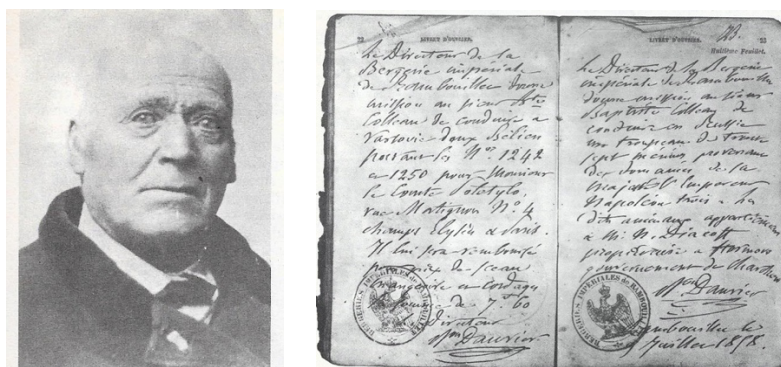 22 LIVRET D'OUVRIER.
Le Directeur de la
Bergerie impériale
de Rambouillet donne
mission au sieur Bte
Colleau de conduire à
Varsovie deux béliers
portant les Nos 1242
et 1250 pour Monsieur
le Comte
rue Matignon No 4
champs Elysées à Paris.
Il lui sera remboursé
de 7f 60
Directeur
Daurier
BERGERIES IMPERIALES de RAMBOUILLET
LIVRET D'OUVRIER. 23
23.
Huitième Feuillet.
Le Directeur de la Bergerie
impériale de Rambouillet
donne mission au sieur
Baptiste Colleau de
conduire en Russie
un troupeau de trente
sept mérinos provenant
des domaines de la
Majesté l'Empereur
Napoléon trois. Les
dits animaux appartiennent
à Mr
propriétaire à
gouvernement de
Daurier
BERGERIES IMPERIALES de RAMBOUILLET
Rambouillet le
Juillet 1858.